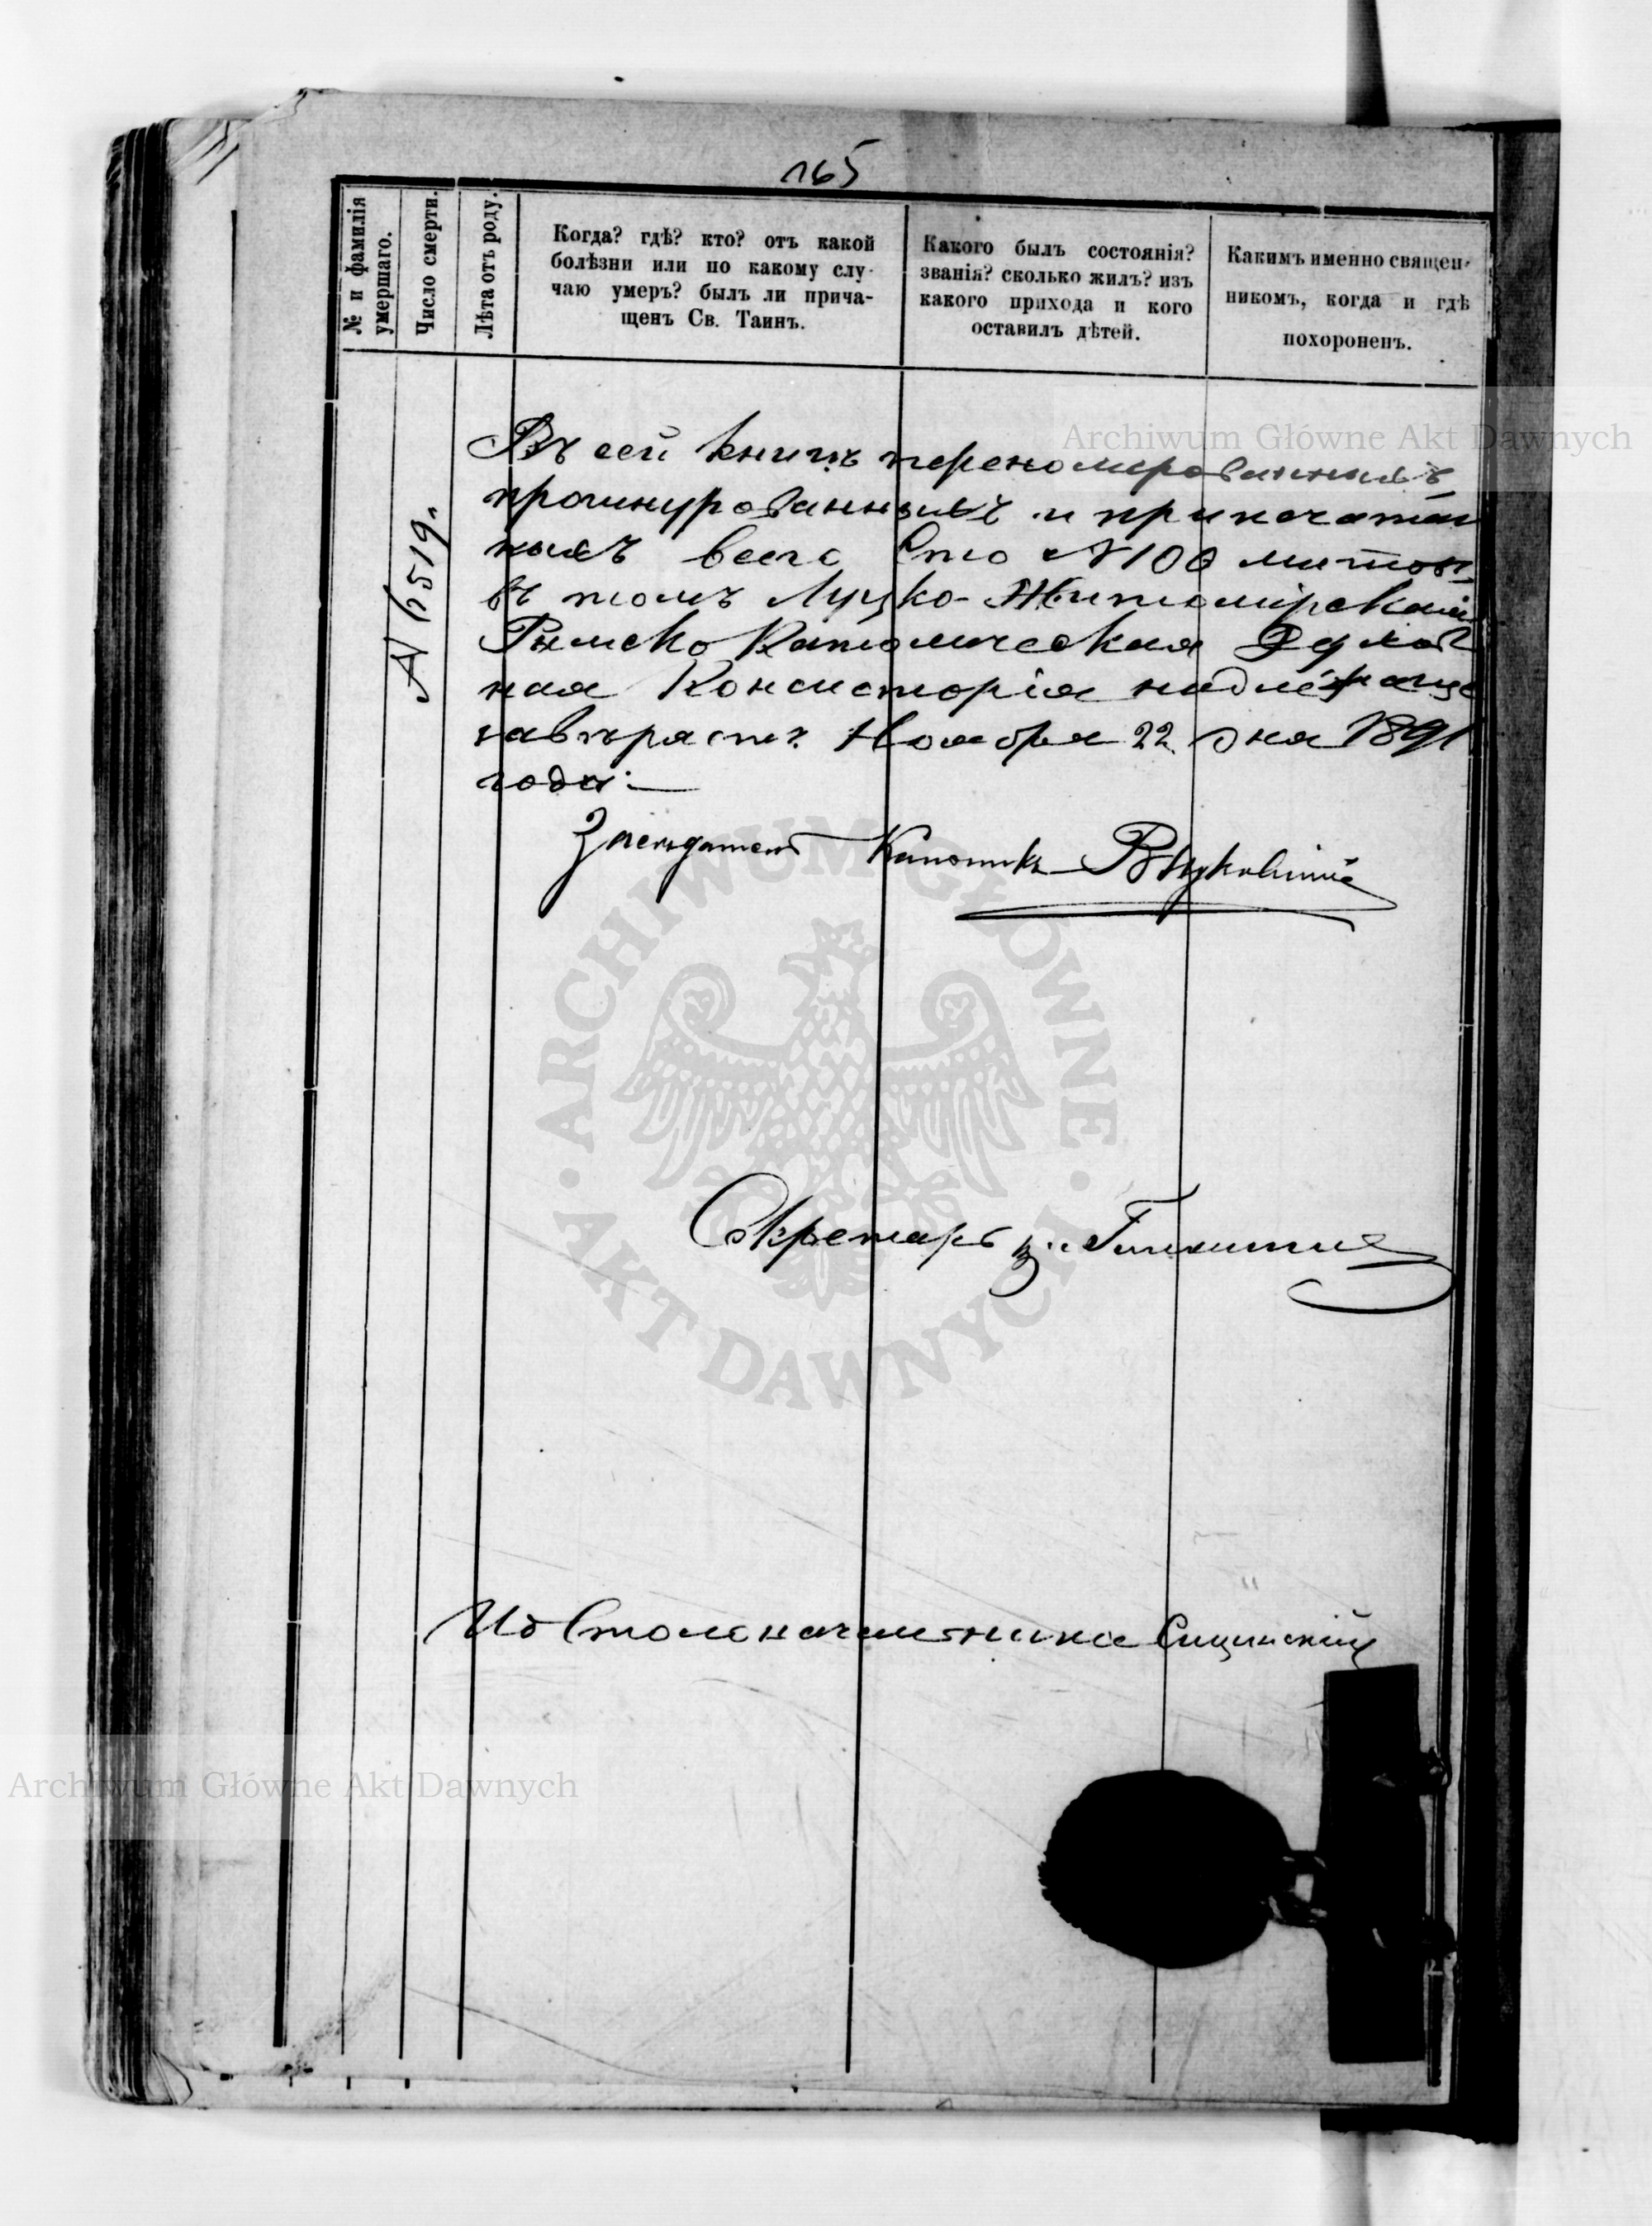 165
№ и фамилія
умершаго.
Число смерти.
Лѣта отъ роду.
Когда? гдѣ? кто? отъ какой
болѣзни или по какому слу-
чаю умеръ? былъ ли прича-
щенъ Св. Таинъ.
Какого былъ состоянія?
званія? сколько жилъ? изъ
какого прихода и кого
оставилъ дѣтей.
Какимъ именно священ-
никомъ, когда и гдѣ
похороненъ.
Въ сей книгѣ переномерованныхъ
прошнурованныхъ и припечатан
ныхъ всего Сто №100 листовъ
въ томъ Луцко-Житомірская
Римско Католическая Духов
ная Консисторія надлежаще
завѣряетъ Ноября 22 дня 1891
года:
№ 6519.
Каноникъ
Секретарь
Ио Столоначальника Сицинскій
Archiwum Główne Akt Dawnych
ARCHIWUM GŁÓWNE · AKT DAWNYCH ·
Archiwum Główne Akt Dawnych